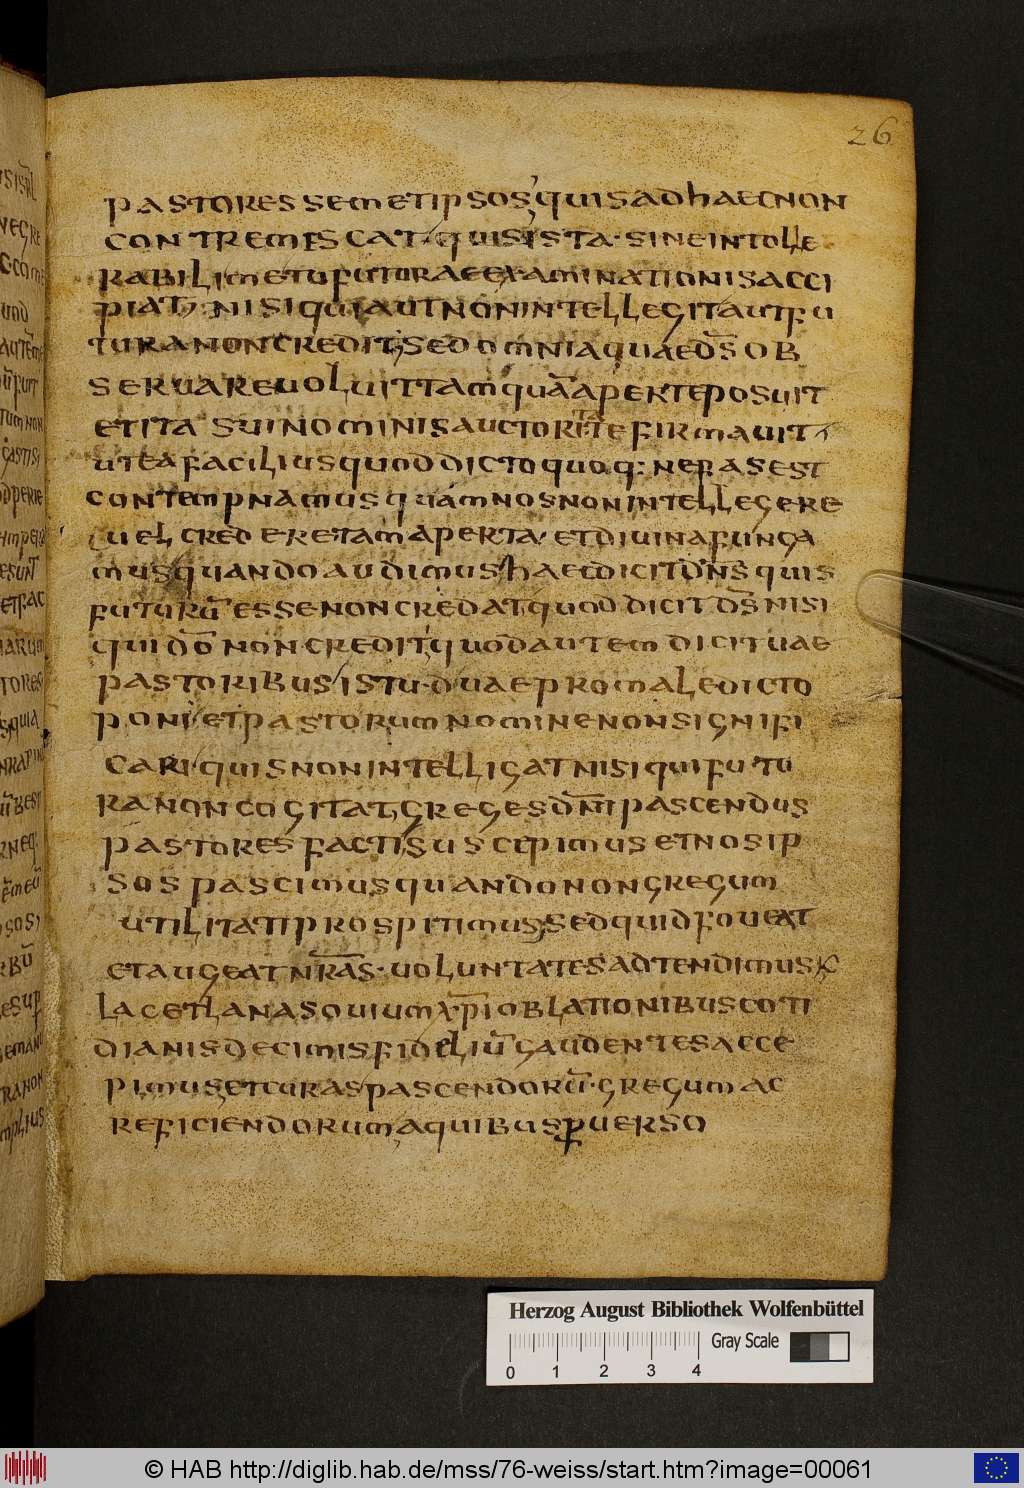 26
pastores semetipsos quis ad haec non
contremescat quis ista sine intolle
rabili metu futurae examinationis acci
piat nisi qui aut non intellegit aut fu
tura non credit sed omnia quae ds̄ ob
servare voluit tam quā aperte posuit
et ita sui nominis auctoritate firmavit
ut ea facilius quod dicto quoq: nefas est
contempnamus quam nos non intellegere
vel credere tam aperta et divina funga
mus quando audimus haec dicit dn̄s quis
futurū esse non credat quod dicit ds̄ nisi
qui dō non credit quod autem dicit vae
pastoribus istud vae pro maledicto
poni et pastorum nomine non signifi
cari quis non intelligat nisi qui futu
ra non cogitat greges dn̄i pascendus
pastores facti suscepimus et nos ip
sos pascimus quando non gregum
utilitati prospitimus sed quid foveat
et augeat nr̄as voluntates adtendimus
lac et lanas ovium xp̄i oblationibus coti
dianis decimis fideliū gaudentes acce
pimus et curas pascendorū gregum ac
reficiendorum a quibus perverso
Herzog August Bibliothek Wolfenbüttel
Gray Scale
0 1 2 3 4
© HAB http://diglib.hab.de/mss/76-weiss/start.htm?image=00061